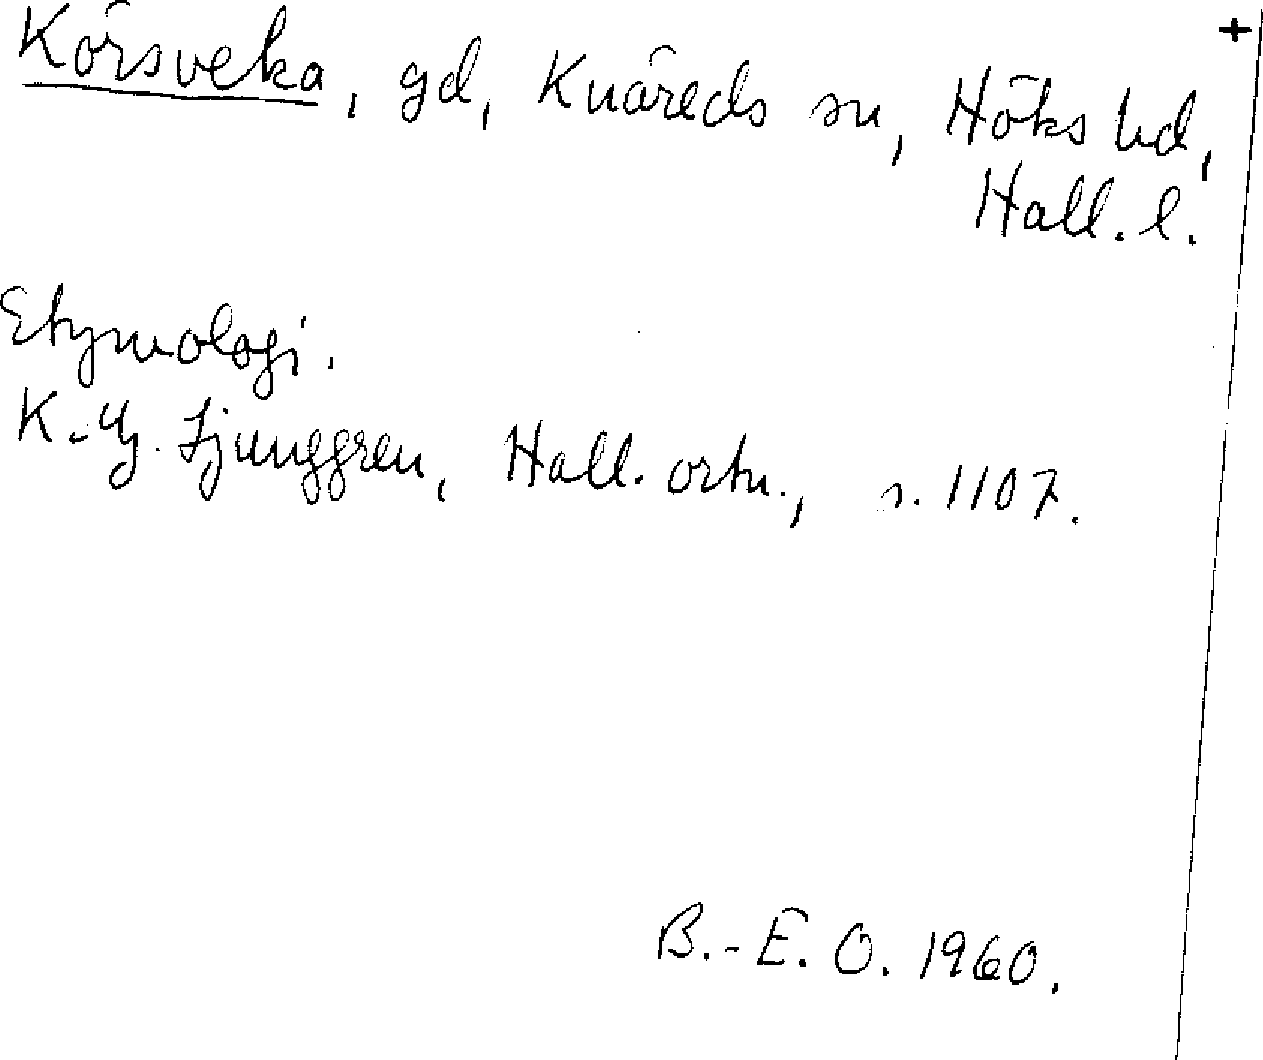 +
Körsveka, gd, Knäreds sn, Höks hd,
Hall. l.
Etymologi.
K.-G. Ljunggren, Hall. ortn., s. 1107.
B.-E. O. 1960.